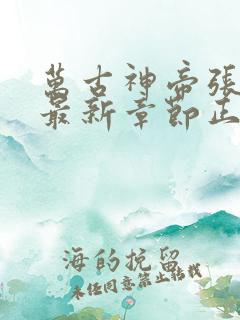 萬古神帝張
最新章節正
海的挽留
未任同意禁止轉載